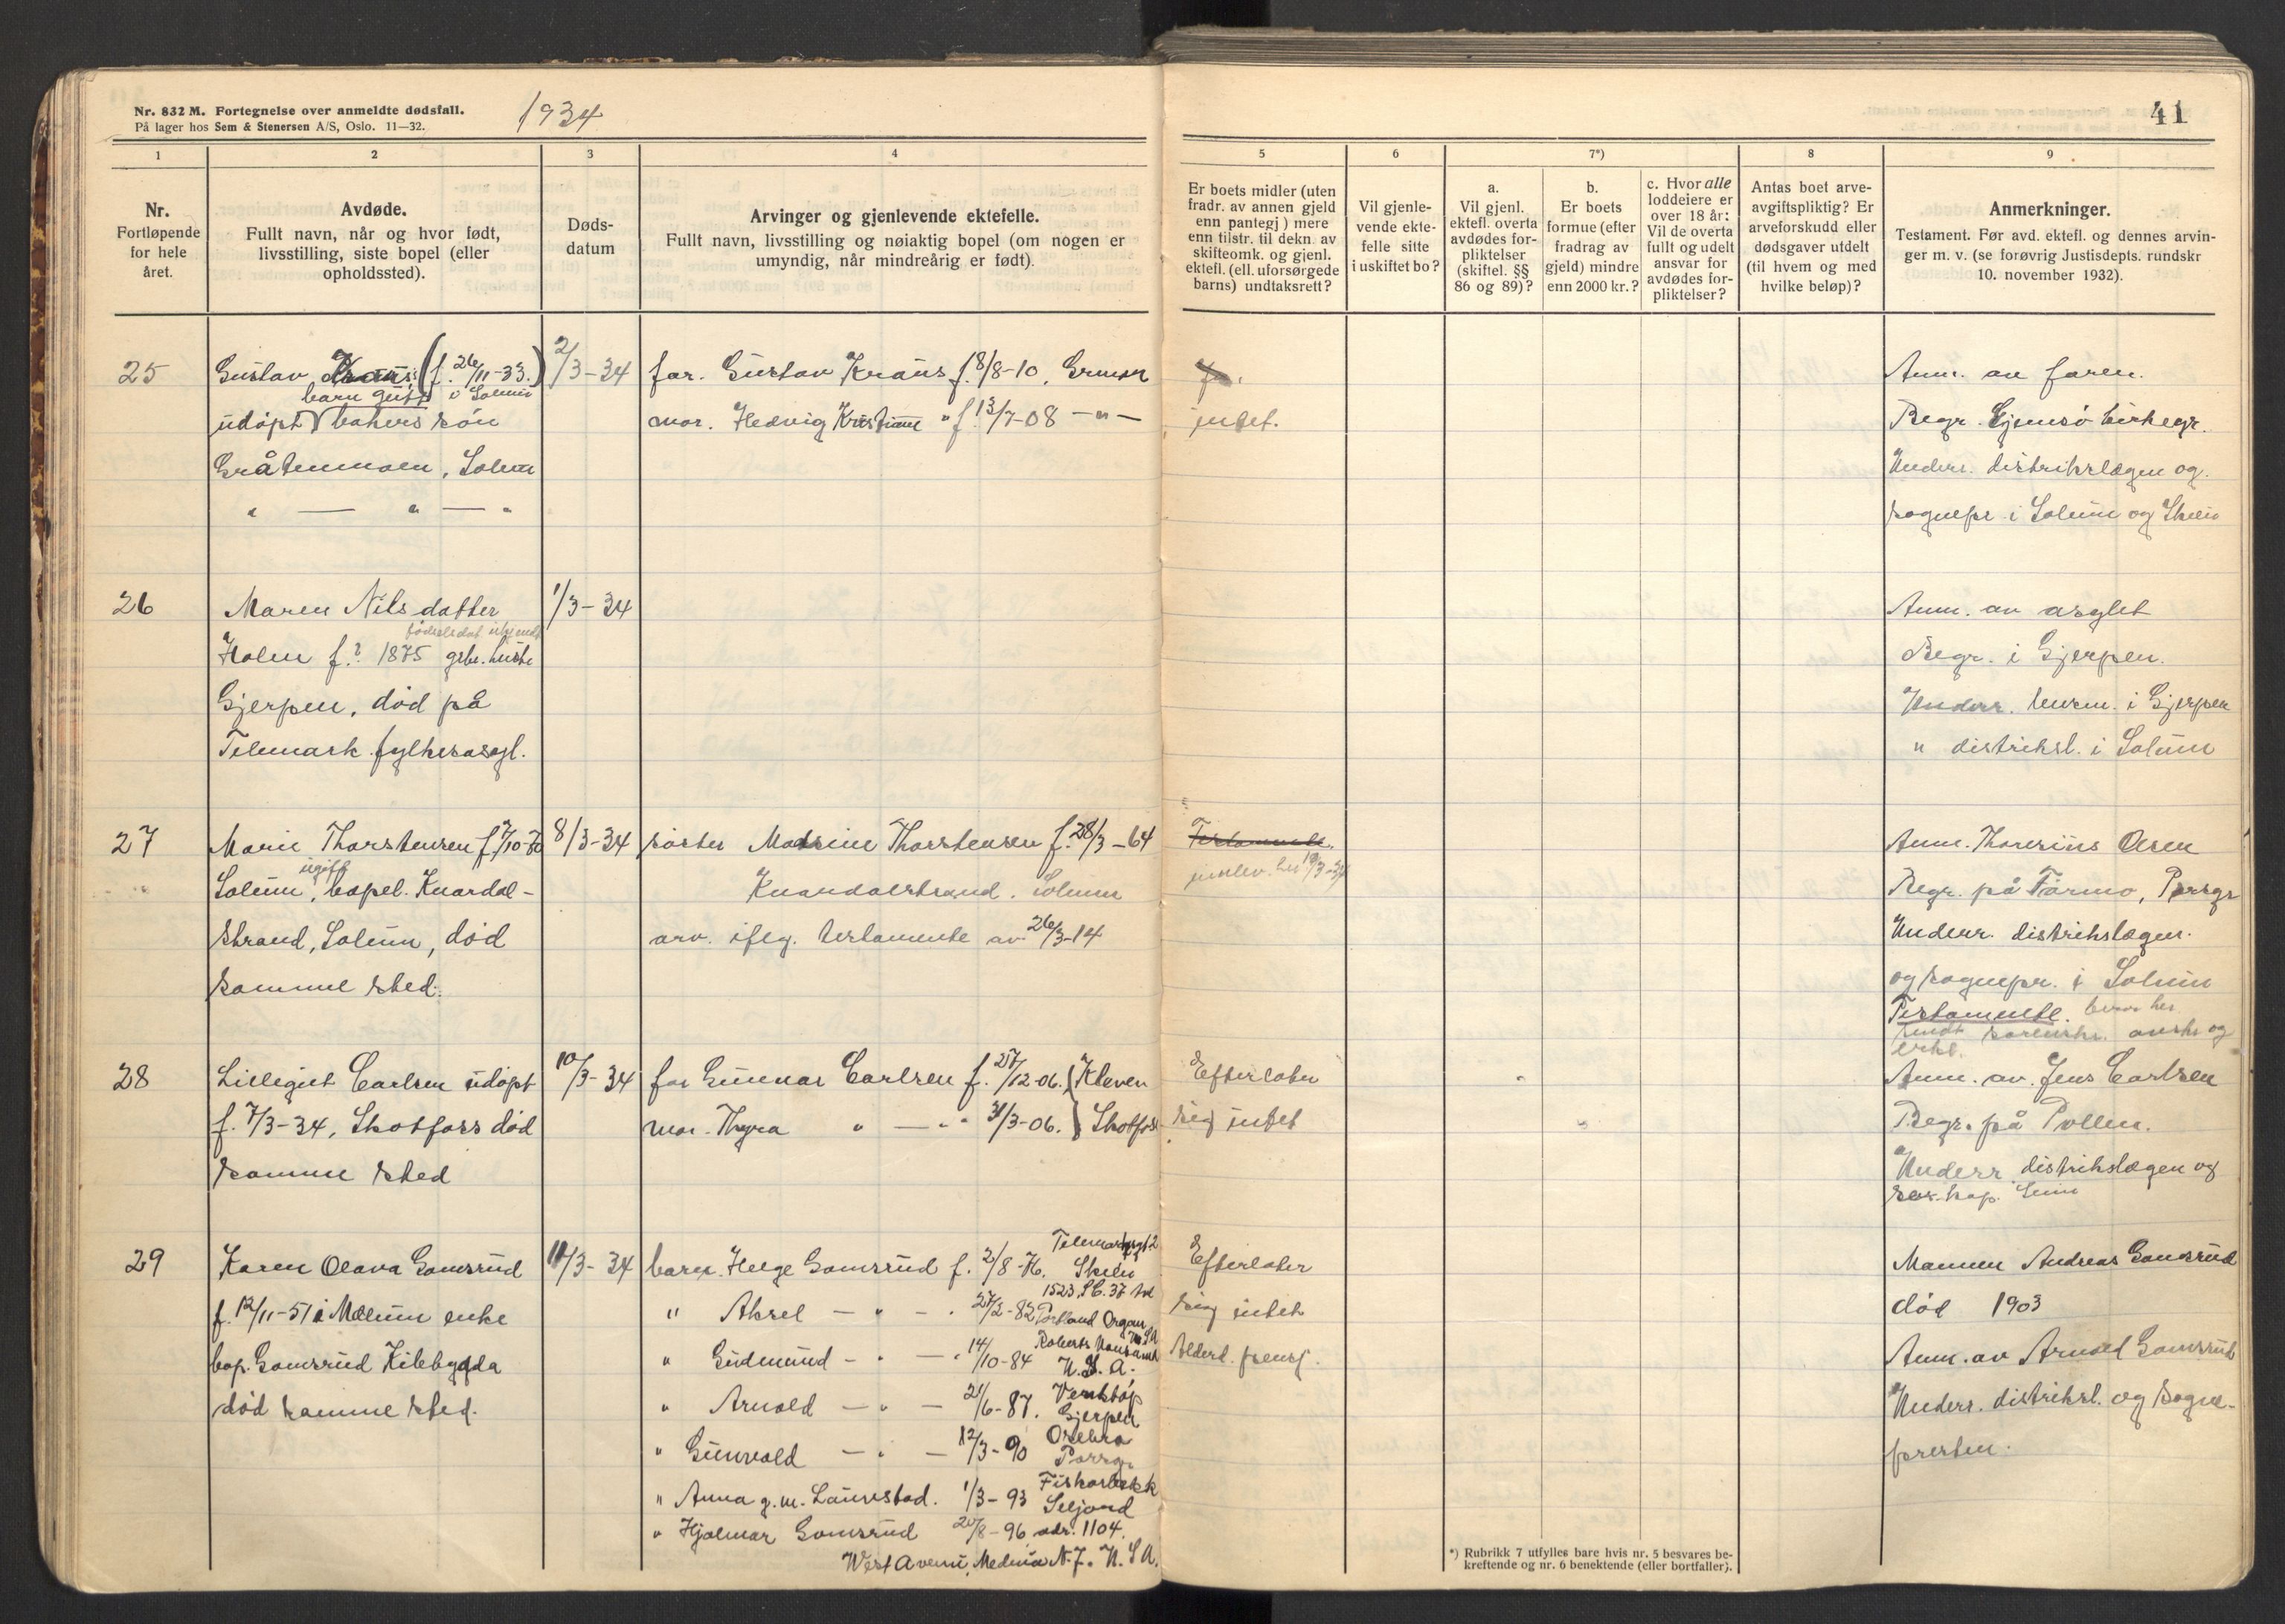 Nr. 832 M. Fortegnelse over anmeldte dødsfall.
På lager hos Sem & Stenersen A/S, Oslo. 11—32.
1934
41
1
2
3
4
5
6
7*)
8
9
Nr.
Fortløpende
for hele
året.
Avdøde.
Fullt navn, når og hvor født,
livsstilling, siste bopel (eller
opholdssted).
Døds-
datum
Arvinger og gjenlevende ektefelle.
Fullt navn, livsstilling og nøiaktig bopel (om nogen er
umyndig, når mindreårig er født).
Er boets midler (uten
fradr. av annen gjeld
enn pantegj) mere
enn tilstr. til dekn. av
skifteomk. og gjenl.
ektefl. (ell. uforsørgede
barns) undtaksrett?
Vil gjenle-
vende ekte-
felle sitte
i uskiftet bo?
a.
Vil gjenl.
ektefl. overta
avdødes for-
pliktelser
(skiftel. §§
86 og 89)?
b.
Er boets
formue (efter
fradrag av
gjeld) mindre
enn 2000 kr.?
c. Hvor alle
loddeiere er
over 18 år:
Vil de overta
fullt og udelt
ansvar for
avdødes for-
pliktelser?
Antas boet arve-
avgiftspliktig? Er
arveforskudd eller
dødsgaver utdelt
(til hvem og med
hvilke beløp)?
Anmerkninger.
Testament. Før avd. ektefl. og dennes arvin-
ger m. v. (se forøvrig Justisdepts. rundskr
10. november 1932).
25
Gustav Kraus (f. 26/11-33.)
i Solum
udøpt bakers søn
Gråtenmoen, Solum
" — " — "
2/3-34
far. Gustav Kraus f. 8/8-10,
mor. Hedvig Kristiane " f. 13/7-08 — " —
intet.
Anm. av faren.
Begr. Gjemsø kirkegr.
Underr. distrikslægen og
sognepr i Solum og Skien
26
Maren Nilsdatter
fødselsdat ukjendt
Holm f.? 1875
Gjerpen, død på
Telemark fylkesasyl.
1/3-34
Anm. av asylet
Begr. i Gjerpen.
Underr. lensm. i Gjerpen
" distriksl. i Solum
27
Marie Thorstensen f.
ugift
Solum, bopel. Knardal-
strand, Solum, død
samme sted.
8/3-34
søster Madsine Thorstensen f. 28/3-64
Knardalstrand. Solum
arv. ifølg. testamente av 26/3-14
Testamente.
Anm. Thorerius Olsen
Begr. på Tørmo, Porsgr
Underr. distrikslægen.
og sognepr. i Solum
Testamente.
28
Lillegut Carlsen udøpt
f. 7/3-34, Skotfoss død
samme sted
10/3-34
far Gunnar Carlsen f. 27/12-06. } Kleven
mor. Thyra " — " 31/3-06. } Skotfoss
Efterlater
sig intet
Anm. av Jens Carlsen
Begr. på Pollen.
Underr distrikslægen og
res. kap.
29
Karen Olava Gomsrud
f. 12/11-51 i Mælum enke
bop. Gomsrud Kilebygda
død samme sted.
11/3-34
barn. Helge Gomsrud f. 2/8-76. Skien
" Aksel — " — 27/2-82 Portland Oregan
" Gudmund — " — 14/10-84 U.S.A.
" Arnold — " — 21/6-87. Gjerpen
" Gunvald — " — 12/3-90 Porsgr.
" Anna g.m. Laurstad. 1/3-93 Seljord
" Hjalmar Gomsrud 20/8-96 adr. 1104.
West Avenu, N.J. U.S.A.
Efterlater
sig intet
Alderd. pensj.
Mannen Andreas Gomsrud
død 1903
Anm. av Arnold Gomsrud
Underr. distriksl. og sogne-
presten.
*) Rubrikk 7 utfylles bare hvis nr. 5 besvares be-
kreftende og nr. 6 benektende (eller bortfaller).